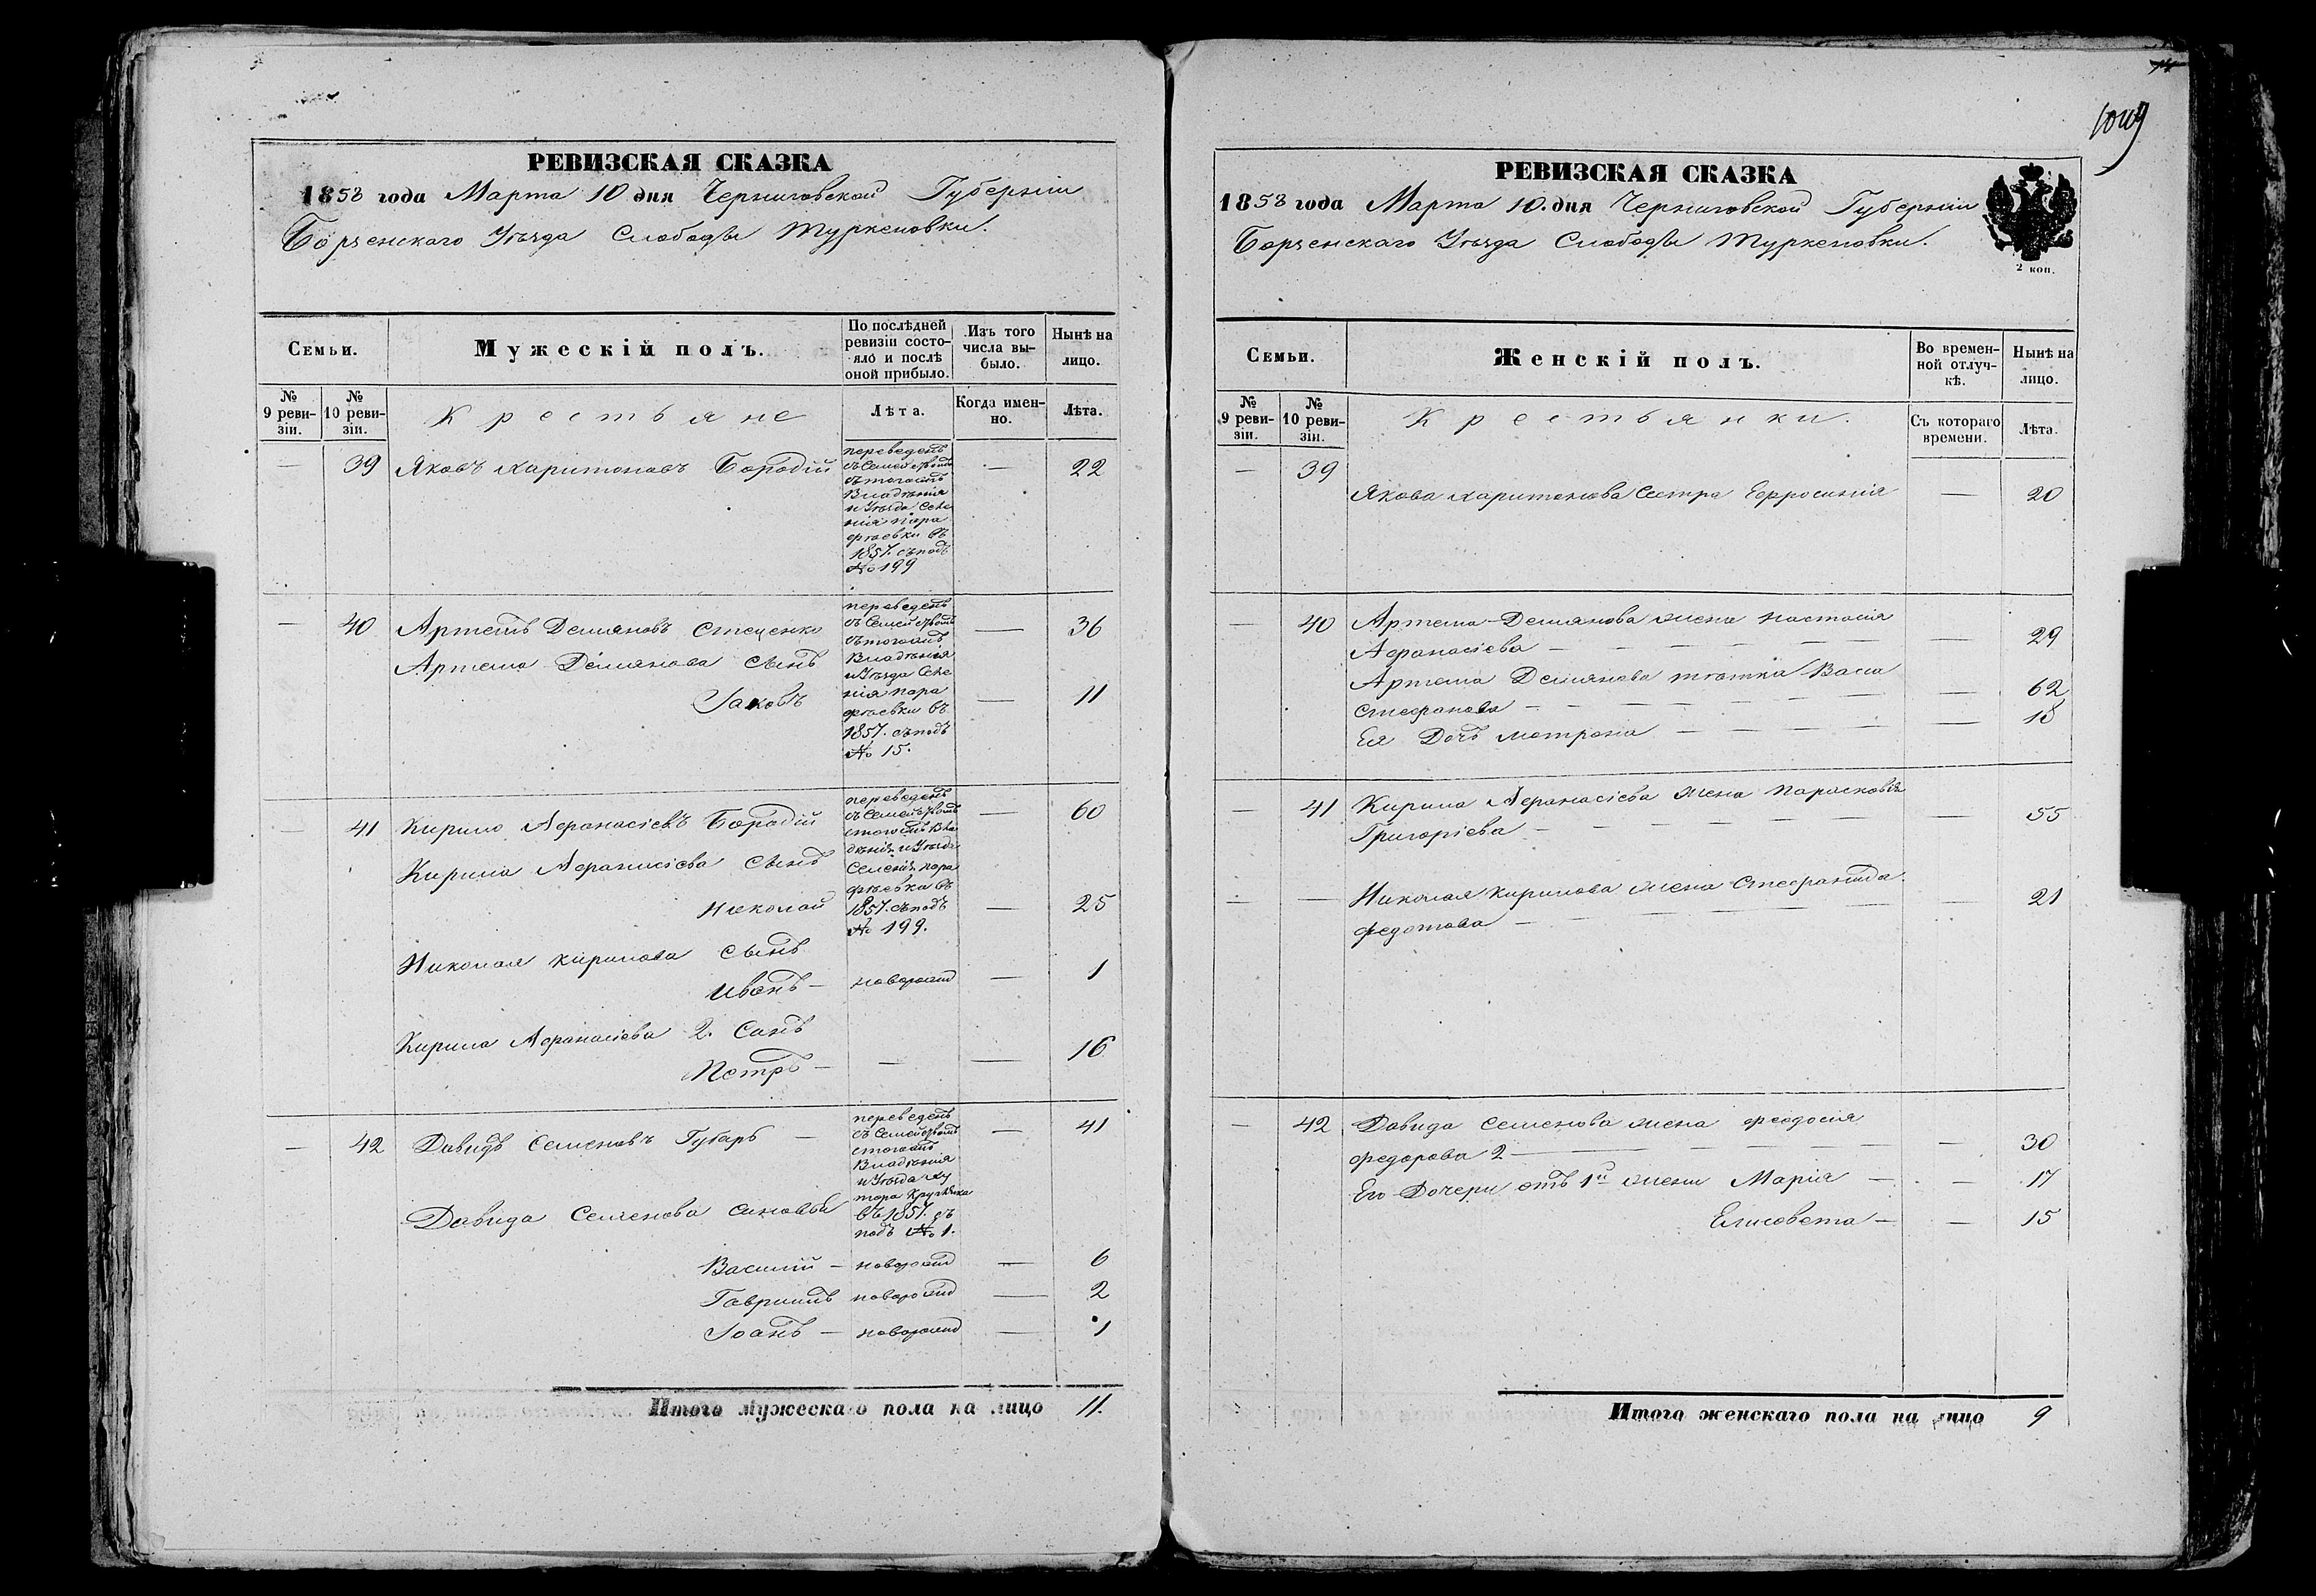 РЕВИЗСКАЯ СКАЗКА
1858 года Марта 10 дня Черниговской Губерніи
Борзенскаго Уѣзда Слободы Туркеновки.
Семьи.
Мужескій полъ.
По послѣдней ревизіи состо-
яло и послѣ оной прибыло.
Изъ того числа вы-
было.
Нынѣ на лицо.
№ 9 реви-
зіи.
№ 10 реви-
зіи.
Крестьяне
Лѣта.
Когда имен-
но.
Лѣта.
— 39 Яковъ Харитоновъ Бородій — 22
переведенъ
съ Семействомъ
стогожъ
Владѣнія
и Уѣзда Селе
нія Пара
фѣевки въ
1857. съ подъ
№ 199
— 40 Артемъ Демяновъ Стеценко — 36
Артема Демянова сынъ
Іаковъ — 11
переведенъ
съ Семействомъ
стогожъ
Владѣнія
и Уѣзда Селе
нія Пара
фѣевки въ
1857. съ подъ
№ 15.
— 41 Кирило Афанасіевъ Бородій — 60
Кирила Афанасіева сынъ
Николай — 25
переведенъ
съ Семействомъ
стогожъ Вла
дѣнія и Уѣзда
Селенія Пара
фѣевки въ
1857. съ подъ
№ 199.
Николая Кирилова сынъ
Иванъ — новорожд — 1
Кирила Афанасіева 2. Синъ
Петръ — — — 16
— 42 Давидъ Семеновъ Губарь — — 41
переведенъ
съ Семействомъ
стогожъ
Владѣнія
и Уѣзда Ху
тора
въ 1857. съ
подъ № 1.
Давида Семенова синовья
Василій — новорожд — 6
Гавриилъ новорожд — 2
Іоанъ — новорожд — 1
Итого мужескаго пола на лицо 11.
1009
РЕВИЗСКАЯ СКАЗКА
1858 года Марта 10. дня Черниговской Губерніи
Борзенскаго Уѣзда Слободы Туркеновки.
2 коп.
Семьи.
Женскій полъ.
Во времен-
ной отлуч-
кѣ.
Нынѣ на лицо.
№ 9 реви-
зіи.
№ 10 реви-
зіи.
Крестьянки.
Съ котораго времени.
Лѣта.
— 39
Якова Харитонова Сестра Ефросинія — 20
— 40 Артема Демянова жена Настасія
Афанасіева — 29
Артема Демянова тіотка Васса
Стефанова — 62
Ея Дочь Матрона — 18
— 41 Кирила Афанасіева жена Парасковія
Григоріева — 55
— — Николая Кирилова жена Стефанида
Федотова — 21
— 42 Давида Семенова жена Феодосія
Федорова 2 — 30
Его Дочери отъ 1й жени Марія — — 17
Елисавета — — 15
Итого женскаго пола на лицо 9